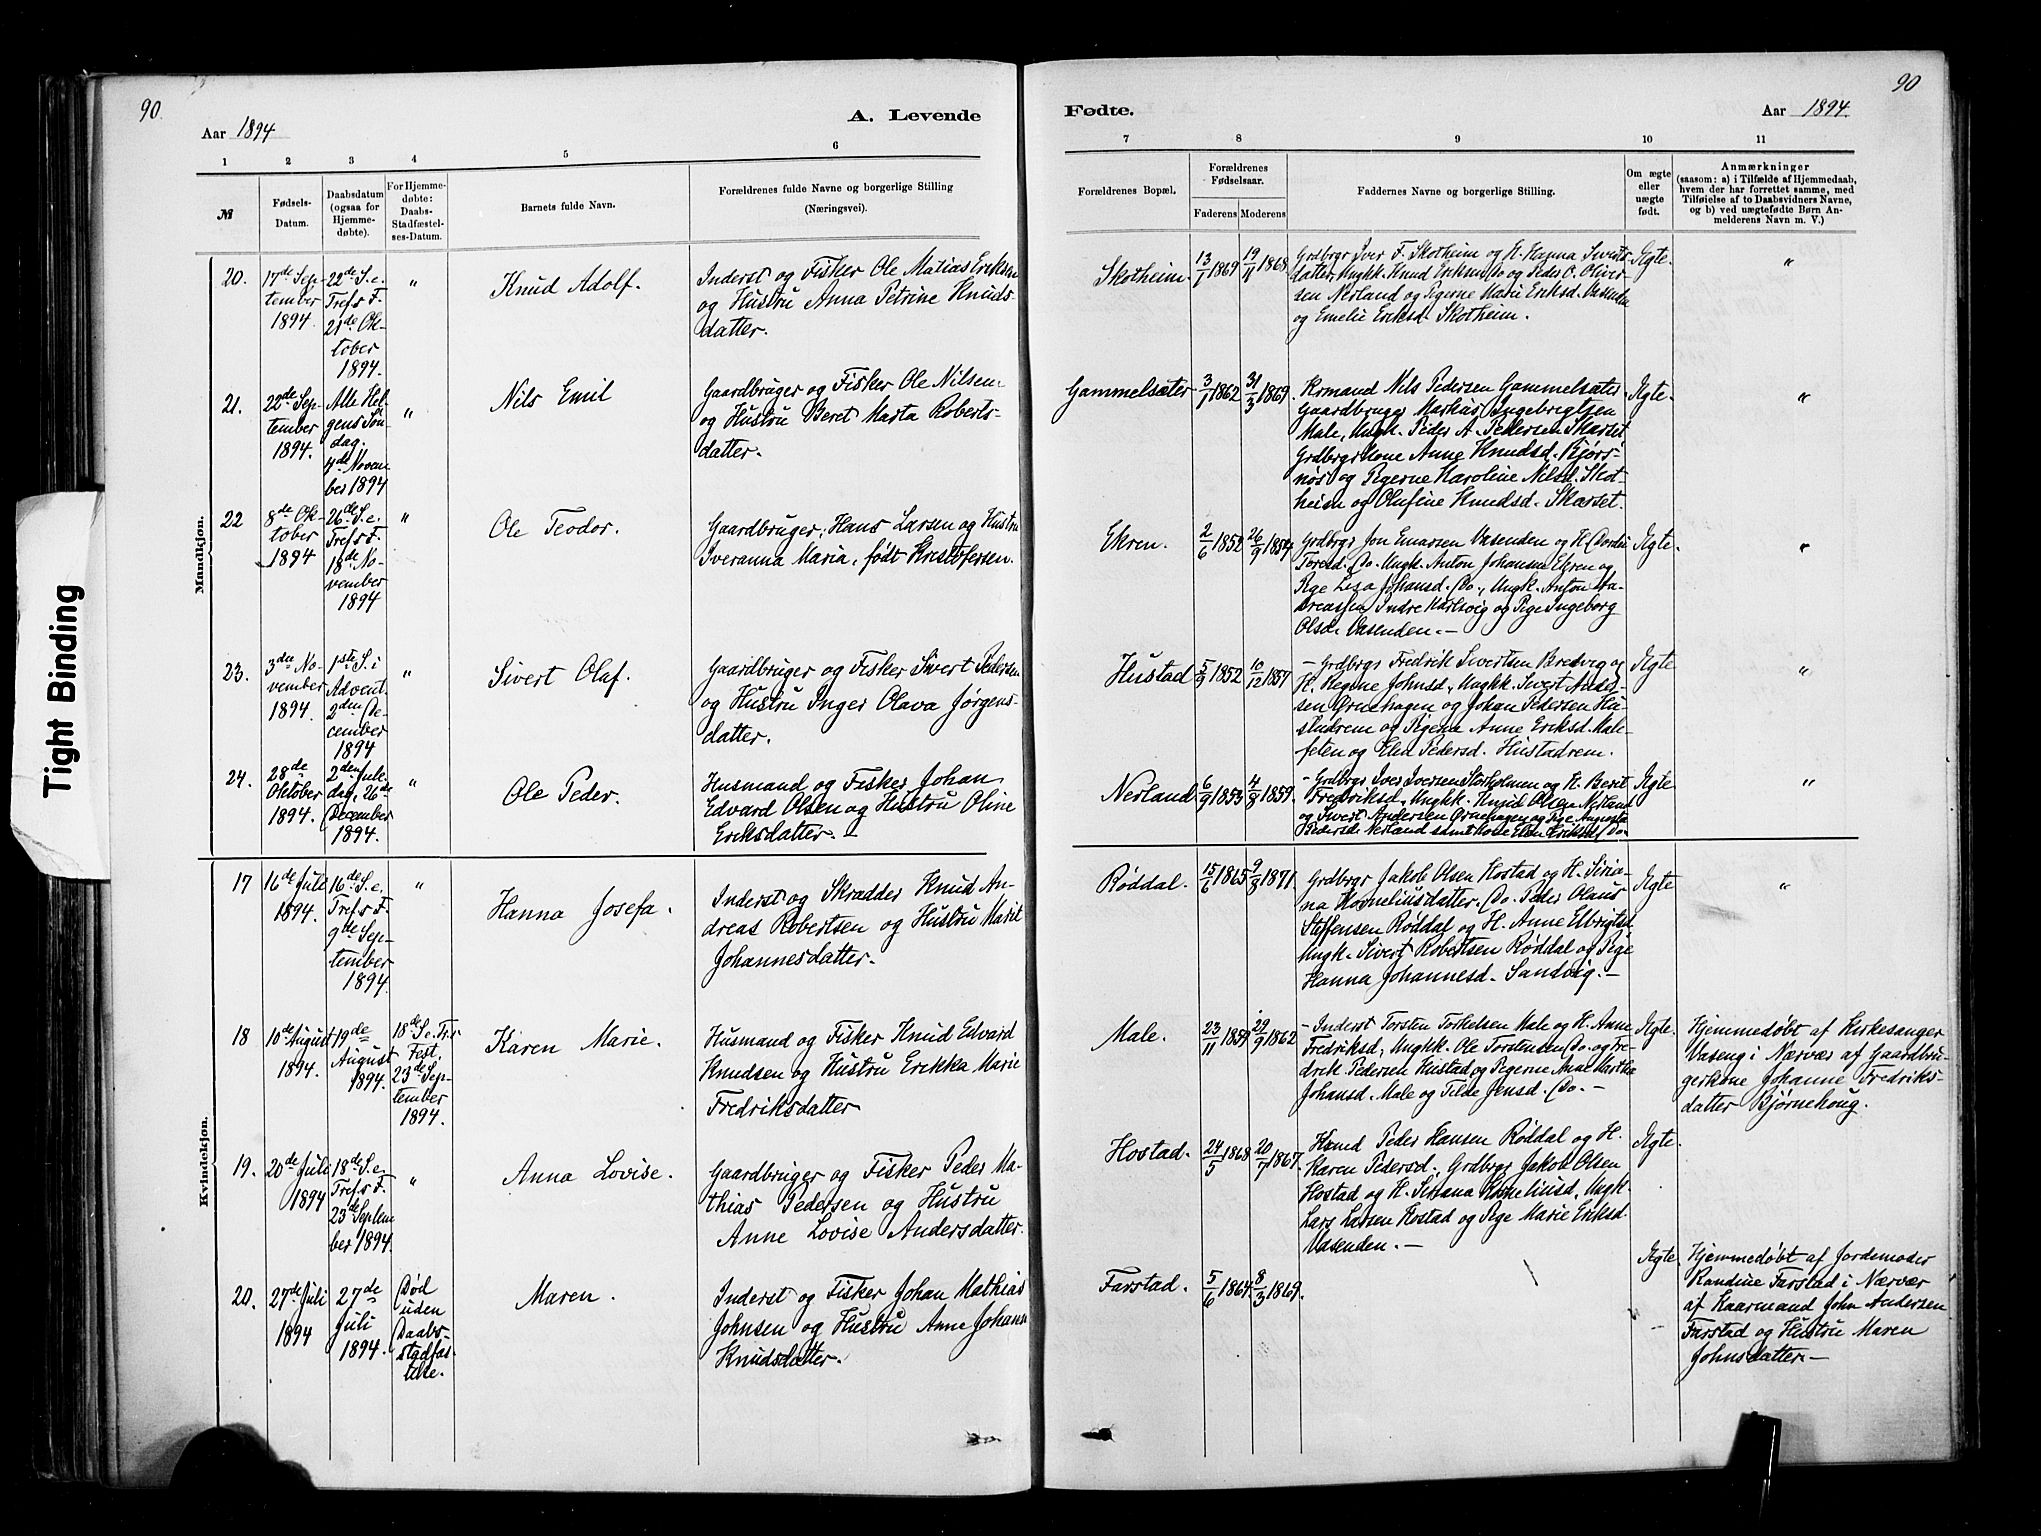 90.
90
Aar 1894
A. Levende
Fødte.
Aar 1894.
1 2 3 4 5 6
7 8 9 10 11
№
Fødsels-
Datum.
Daabsdatum
(ogsaa for
Hjemme-
døbte).
For Hjemme-
døbte:
Daabs-
Stadfæstel-
ses-Datum.
Barnets fulde Navn.
Forældrenes fulde Navne og borgerlige Stilling
(Næringsvei).
Forældrenes Bopæl.
Forældrenes
Fødselsaar.
Faderens Moderens
Faddernes Navne og borgerlige Stilling.
Om ægte
eller
uægte
født.
Anmærkninger
(saasom: a) i Tilfælde af Hjemmedaab,
hvem der har forrettet samme, med
Tilføielse af to Daabsvidners Navne,
og b) ved uægtefødte Børn An-
melderens Navn m. V.)
Mandkjøn.
20.
17de Sep-
tember
1894.
22de S.e.
Tref's F.
21de Ok-
tober
1894.
"
Knud Adolf.
Inderst og Fisker Ole Matias Eriksen
og Hustru Anna Petrine Knuds-
datter.
Skotheim.
13/1 1869
19/11 1868
Grdbrgr Iver F. Skotheim og H. Hanna Siverts-
datter, Ungkk. Knud Eriksen Do og Peder O. Oliver-
sen Nerland og Pigerne Marie Eriksd. Vasenden
og Emelie Eriksd. Skotheim.
Ægte.
"
21.
22de Sep-
tember
1894.
Alle Hel-
gens Søn-
dag.
4de Novem
ber 1894
"
Nils Emil
Gaardbruger og Fisker Ole Nilsen
og Hustru Beret Marta Roberts-
datter.
Gammelsæter
3/1 1862
31/3 1869
Krmand Nils Pedersen Gammelsæter
Gaardbruger Markus Ingebrigtsen
Male, Ungk. Peder A. Pedersen Skarset
Grdbrgrkone Anne Knudsd. Bjørs-
nøs og Pigerne Karoline Nilsd. Skot-
heim og Olufine Knudsd. Skarset.
Ægte.
"
22
8de Ok-
tober
1894
26de S.e.
Tref's F.
18de No-
vember
1894
"
Ole Teodor.
Gaardbruger; Hans Larsen og Hustru
Iveranna Maria, født Kristofersen.
Ekren.
2/6 1852
26/9 1854
Grdbrgr Jon Einarsen Vasenden og H. Dordi
Toresd. Do. Ungk. Anton Johansen Ekren og
Pige Lisa Johansd. Do., Ungk. Anton An-
dreassen Indre Harlsvig og Pige Ingeborg
Olsd. Vasenden. —
Ægte.
"
23.
3die No-
vember
1894.
1ste S. i
Advent.
2den De-
cember
1894
"
Sivert Olaf.
Gaardbruger og Fisker Sivert Pedersen
og Hustru Inger Olava Jørgens-
datter.
Hustad
5/3 1852
10/12 1857
- Grdbrgr Fredrik Sivertsen Bredvig og
H. Regine Johnsd., Ungkk. Sivert Ander-
sen Ørnehagen og Johan Pedersen Hu-
stadrem og Pigerne Anne Eriksd. Male-
feten og Elen Pedersd. Hustadrem.
Ægte
"
24.
28de
Oktober
1894.
2den Jule
dag, 26de
December
1894.
"
Ole Peder.
Husmand og Fisker Johan
Edvard Olsen og Hustru Oline
Eriksdatter. —
Nerland
6/9 1853
4/8 1859.
- Grdbrgr Iver Iversen Storholmen og H. Berit
Fredriksd., Ungkk. Knud Olsen Nerland
og Sivert Andersen Ørnehagen og Pige Augusta
Pedersd. Nerland samt Kone Elen Eriksd. Do.
Ægte
"
Kvindekjøn.
17
16de Juli
1894.
16de S.e.
Tref's F.
9de Sep-
tember
1894.
"
Hanna Josefa.
Inderst og Skrædder Knud An-
dreas Robertsen og Hustru Marit
Johannesdatter.
Røddal.
15/6 1865
9/8 1871
Grdbrgr Jakob Olsen Hostad og H. Siria-
na Korneliusdatter. Do. Peder Olaus
Steffensen Røddal og H. Anne Elbrigtsd.
Ungk. Sivert Robertsen Røddal og Pige
Hanna Johannesd. Sandvig. —
Ægte
"
18
10de August
1894.
19de
August
1894.
18de S.e. Trf's
Fest.
23de Sep-
tember
1894.
Karen Marie.
Husmand og Fisker Knud Edvard
Knudsen og Hustru Erikka Marie
Fredriksdatter
Male.
23/11 1859
29/9 1862
- Inderst Torsten Torkelsen Male og H. Anne
Fredriksd., Ungkk. Ole Torstensen Do. og Fre-
drik Pedersen Hustad og Pigerne Anne Martha
Johansd. Male og Tilde Jensd. Do. —
Ægte.
Hjemmedøbt af Kirkesanger
Vaseng i Nærvær af Gaardbru-
gerkone Johanne Fredriks-
datter Bjørnehoug.
19.
20de Juli
1894
18de S.e.
Tref's F.
23de Septem
ber 1894.
"
Anna Lovise.
Gaardbruger og Fisker Peder Ma-
thias Pedersen og Hustru
Anne Lovise Andersdatter.
Hostad.
24/5 1868
20/7 1867.
Kmd Peder Hansen Røddal og H.
Karen Pedersd., Grdbrgr Jakob Olsen
Hostad og H. Siriana Korneliusd., Ungk.
Lars Larsen Hostad og Pige Marie Eriksd.
Vasenden. —
Ægte.
20.
27de Juli
1894
27de
Juli
1894.
Død
uden
Daabs-
stadfæs-
telse.
Maren.
Inderst og Fisker Johan Mathias
Johnsen og Hustru Anne Johanne
Knudsdatter.
Farstad.
5/6 1864.
8/3 1869.
Ægte
Hjemmedøbt af Jordemoder
Randine Farstad i Nærvær
af Kaarmand John Andersen
Farstad og Hustru Maren
Johnsdatter. —
Tight Binding